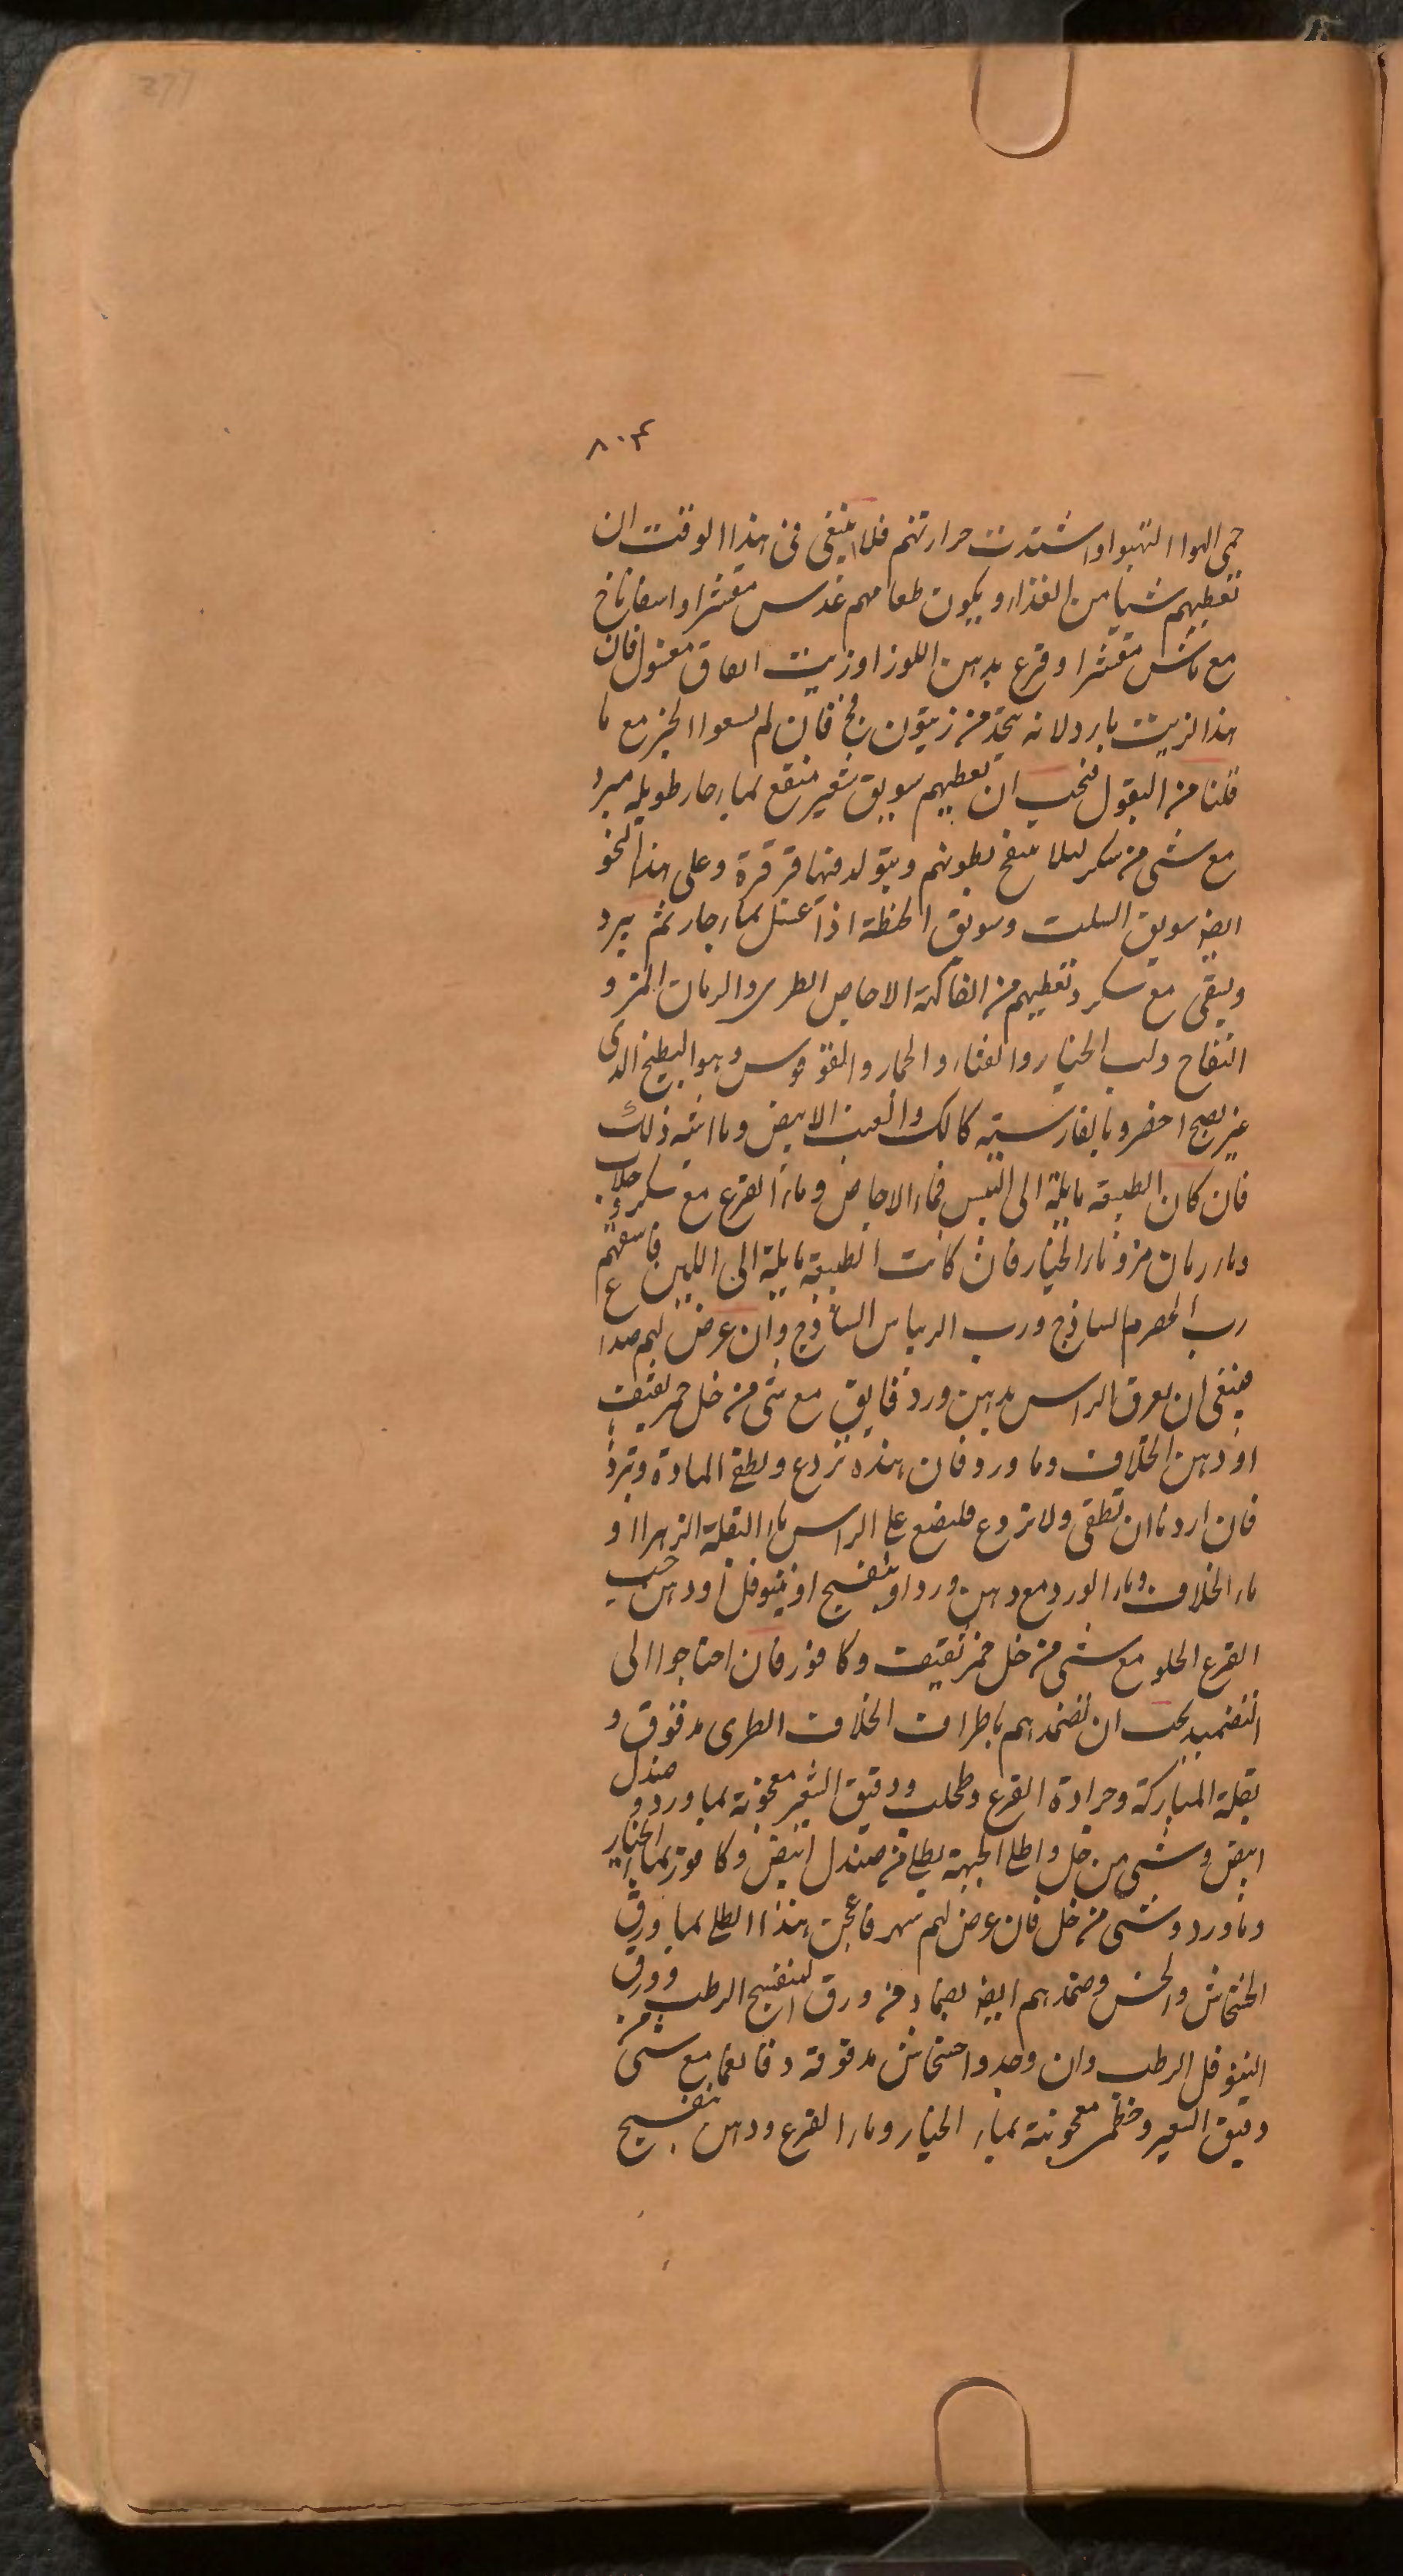 277
٨٠٤
حمى الهوا التهبوا واشتدت حرارتهم فلا ينبغى فى هذا الوقت ان
تعطيهم شيا من الغذاء ويكون طعامهم عدس مقشرا واسفاناخ
مع ماش مقشرا وقرع بدهن اللوز او زيت انفاق مغسول فان
هذا الزيت بارد لانه يتخذ من زيتون فج فان لم الخبز مع ما
قلنا من البقول فيجب ان تعطيهم سويق شعير منقع بماء حار طويله مبرد
مع شى من سكر ليلا ينفخ بطونهم ويتولد فيها قرقرة وعلى هذا النحو
ايضا سويق السلت وسويق الحنطة اذا غسل بماء حار ثم يبرد
ويسقى مع سكر وتعطيهم من الفاكهة الاجاص الطرى والرمان المز و
التفاح ولب الخيار والقثاء والخيار والقوس وهو البطيخ الذى
غير نضج اخضر وبالفارسيته كالك والعنب الابيض وما اشبه ذلك
فان كان الطبيعه مايلة الى اليبس فماء الاجاص وماء القرع مع سكر وجلاب
وماء رمان مز وماء الخيار فان كانت الطبيعة مايلة الى اللين فاسقهم
رب الحصرم الساذج ورب الريباس الساذج وان عرض لهم صداع
فينبغى ان يعرق الراس بدهن ورد فايق مع شى من خل خمر ثقيف
او دهن الخلاف وما ورد فان هذه تردع وتطفى المادة وتبرد
فان اردنا ان تطفى ولا تردع فليضع على الراس ماء البقلة الزهرا او
ماء الخلاف وماء الورد مع دهن ورد او بنفسج او نينوفل او دهن حب
القرع الحلو مع شى من خل خمر ثقيف وكافور فان احتاجوا الى
التضميد يجب ان تضمدهم باطراف الخلاف الطرى مدقوق و
بقلة المباركة وجرادة القرع وطحلب ودقيق الشعير معجونة بما ورد و صندل
ابيض وشى من خل واطلى الجبهة بطلى من صندل ابيض وكافور بماء الخيار
وماورد وشى من خل فان عرض لهم سهر فاعجن هذا الطلى بما ورق
الخشخاش والخس وضمدهم ايضا بضماد من ورق البنفسج الرطب وورق
النينوفل الرطب وان وجدوا خشخاش مدقوقة دقا ناعما مع شى من
دقيق الشعير وخطمى معجونة بماء الخيار وماء القرع ودهن بنفسج